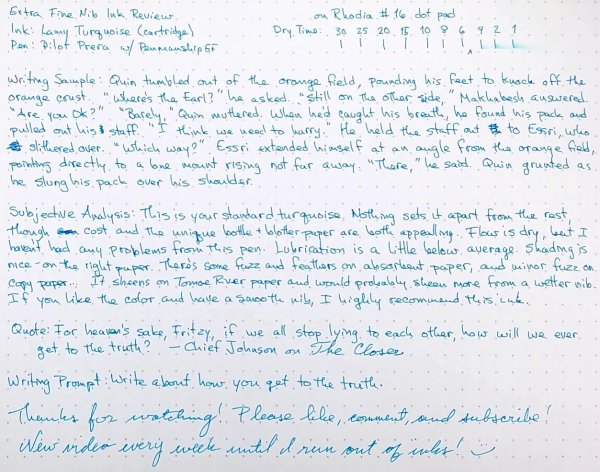 Extra Fine Nib Ink Review. on Rhodia #16 dot pad
Ink: Lamy Turquoise (cartridge) Dry Time: 30 25 20 15 10 8 6 4 2 1
Pen: Pilot Prera w/ Penmanship EF
Writing Sample: Quin tumbled out of the orange field, pounding his feet to knock off the
orange crust. "Where's the Earl?" he asked. "Still on the other side," Makhabesh answered.
"Are you Ok?" "Barely," Quin muttered. When he'd caught his breath, he found his pack and
pulled out his staff. "I think we need to hurry." He held the staff out to Essri, who
slithered over. "Which way?" Essri extended himself at an angle from the orange field,
pointing directly to a lone mount rising not far away. "There," he said. Quin grunted as
he slung his pack over his shoulder.
Subjective Analysis: This is your standard turquoise. Nothing sets it apart from the rest,
though cost and the unique bottle + blotter paper are both appealing. Flow is dry, but I
haven't had any problems from this pen. Lubrication is a little below average. Shading is
nice - on the right paper. There's some fuzz and feathers on absorbent paper, and minor fuzz on
copy paper. It sheens on Tomoe River paper and would probably sheen more from a wetter nib.
If you like the color and have a smooth nib, I highly recommend this ink.
Quote: For heaven's sake, Fritzy, if we all stop lying to each other, how will we ever
get to the truth? - Chief Johnson on The Closer
Writing Prompt: Write about how you get to the truth.
Thanks for watching! Please like, comment, and subscribe!
New video every week until I run out of inks!